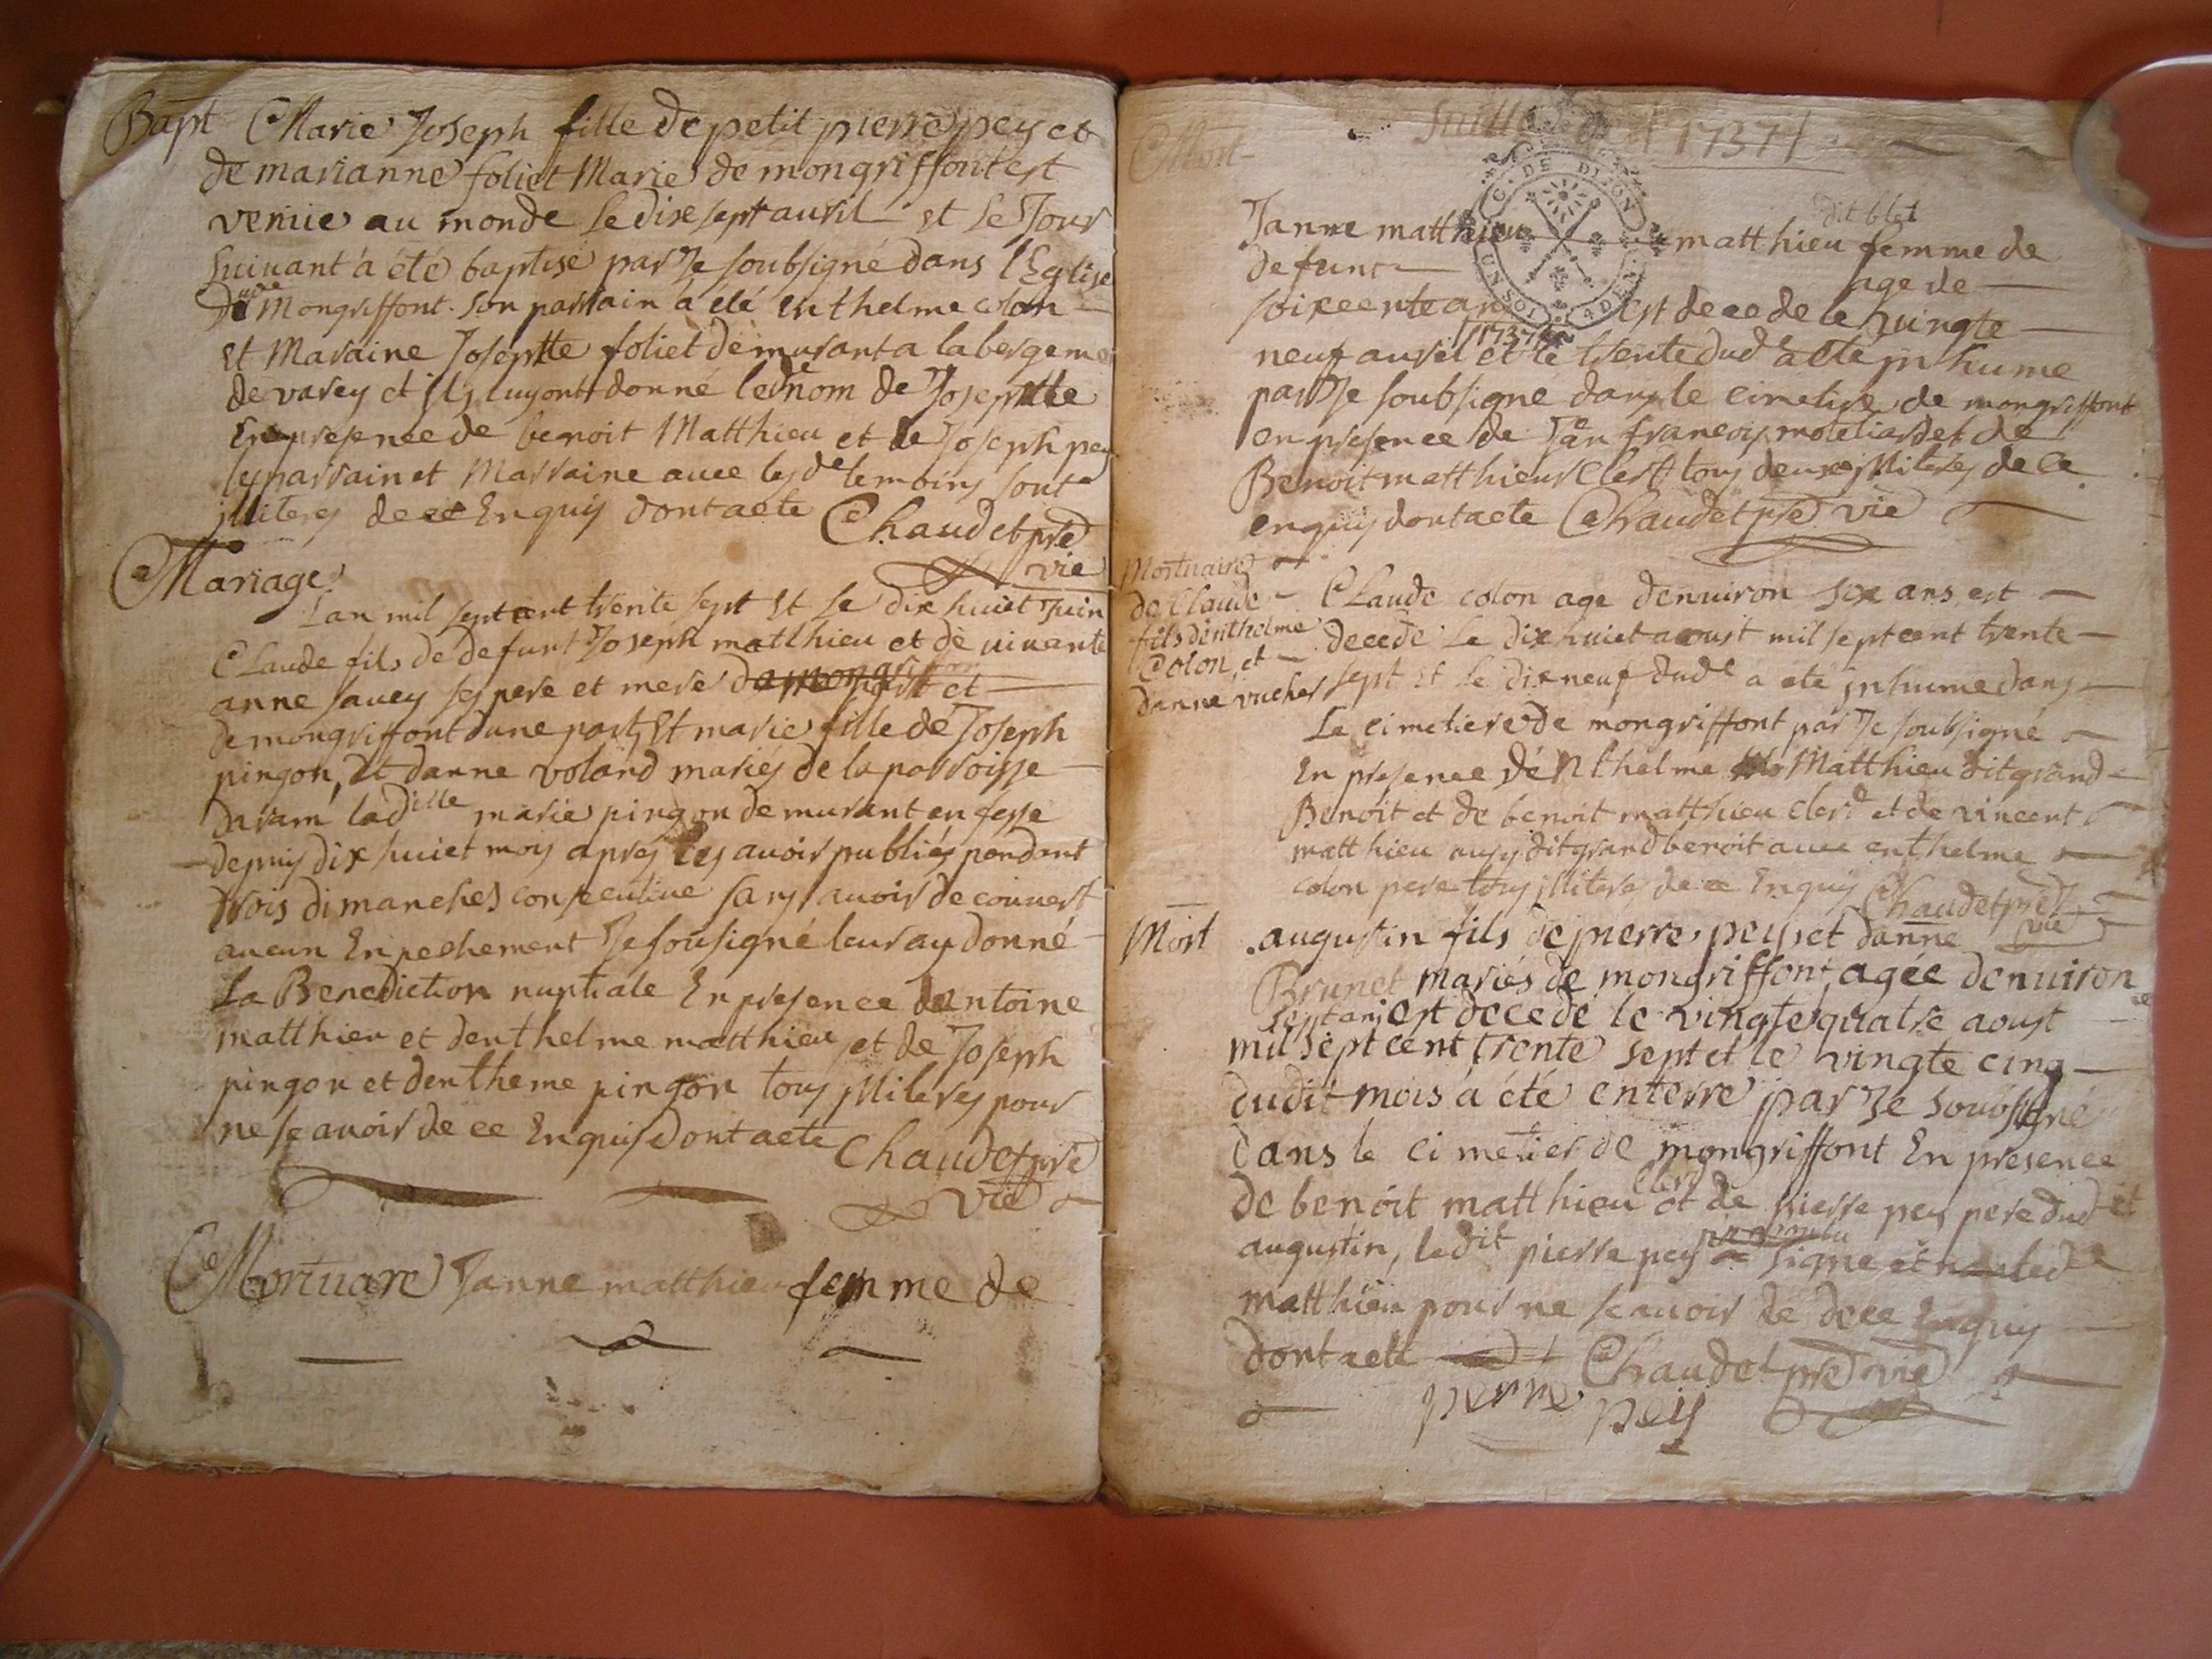 Bapt Marie Joseph fille de petit pierre pey et
de marianne foliet Marie de mongriffont est
venüe au monde le dixsept auril et le Jour
suiuant a été baptisé par Je soubsigné dans l'Eglise
de Mongriffont. Son parrain a été Enthelme colon
et Maraine Josephtte foliet demurant a la bergeme
de varey et ils luy ont donné led nom de Josephtte
En presence de benoit Matthieu et de Joseph pey
les parrain et Marraine auec les de temoins sont
illiteres de ce Enquis dont acte Chaudet pre
vie
Mariage
Lan mil sept cent trente sept et le dix huiet Juin
Claude fils de defunt Joseph matthieu et de uiuante
anne sauey ses pere et mere
de mongriffont dune part, Et marie fille de Joseph
pingon, et danne voland mariés de la parroisse
ladille marie pingon demurant en fesse
depuis dix huiet mois apres les auoir publiés pendant
trois dimanches consecutiue sans auoir decouuert
aucun Enpechement Je sousigné leur ay donné
La Benediction nuptiale En presence dentoine
matthieu et denthelme matthieu et de Joseph
pingon et dentheme pingon tous illiteres pour
ne scauoir de ce Enquis dont acte Chaudet pre
vie
Mortuare Janne matthieu femme de
Mort
1737
dit blet
Janne matthieu matthieu femme de
defunt
age de
soixcente an est decede le vingte
1737
neuf auril et le trente dud a été inhume
par Je soubsigné dans le cimetire de mongriffont
en presence de Jan francois moteliard et de
Benoit matthieu clert tous deux illiteres de ce
enquis dont acte Chaudet pre vie
C. DE DIJON
Mortuaire
de Claude
fils denthelme
Colon, et
danne vucher
Claude colon age denuiron six ans est
decede Le dix huiet aoust mil sept cent trente
sept et le dix neuf dud a été inhume dans
Le cimetiere de mongriffont par Je soubsigné
En presence dEnthelme Matthieu dit grand
Benoit et de benoit matthieu cler et de vincent
matthieu ausy dit grand benoit auec enthelme
colon pere tous illiteres de ce Enquis Chaudet pre
vie
Mort augustin fils de pierre pey et danne
Brunet mariés de mongriffont, agée denuiron
sept ans est decede le vingte quatre aoust
mil sept cent trente sept et le vingte cinq
dudit mois a été enterre par Je soubsigné
dans le cimetier de mongriffont En presence
clert
de benoit matthieu et de pierre pey pere dud
augustin, ledit pierre pey signe et
matthieu pour ne scauoir de dece Enquis
dont acte Chaudet pre vie
pierre pey